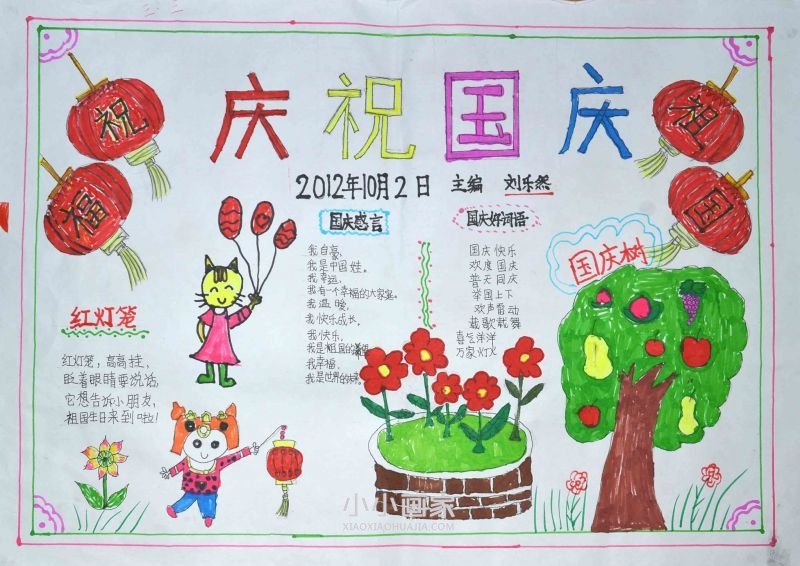 庆祝国庆
祝
福
祖
国
2012年10月2日 主编 刘乐然
国庆感言
我自豪,
我是中国娃。
我幸运,
我有一个幸福的大家庭。
我温暖,
我快乐成长。
我快乐,
我是祖国的
我幸福,
我是世界的未来。
国庆好词语
国庆快乐
欢度国庆
普天同庆
举国上下
欢声雷动
载歌载舞
喜气洋洋
万家灯火
国庆树
红灯笼
红灯笼,高高挂,
眨着眼睛要说话,
它想告诉小朋友,
祖国生日来到啦!
小小画家
XIAOXIAOHUAJIA.COM